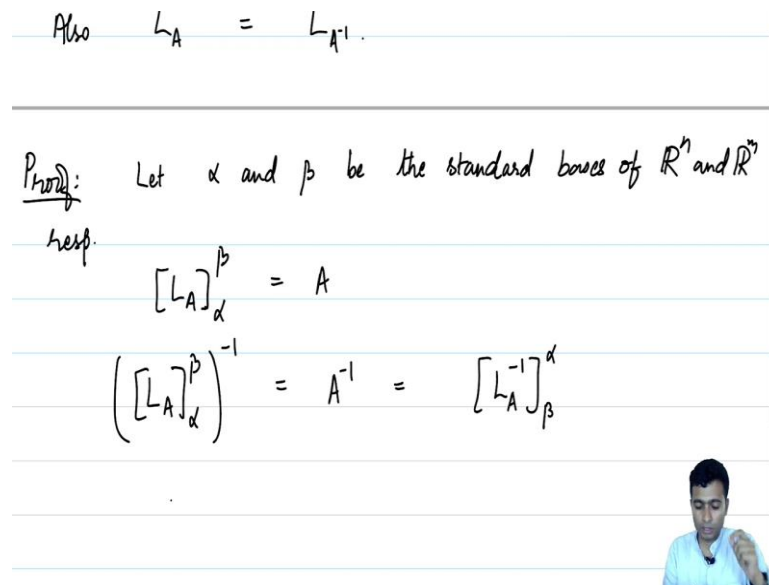 Also L_A = L_{A^{-1}}.
Proof: Let α and β be the standard bases of ℝ^n and ℝ^m
resp.
[L_A]_α^β = A
([L_A]_α^β)^{-1} = A^{-1} = [L_A^{-1}]_β^α